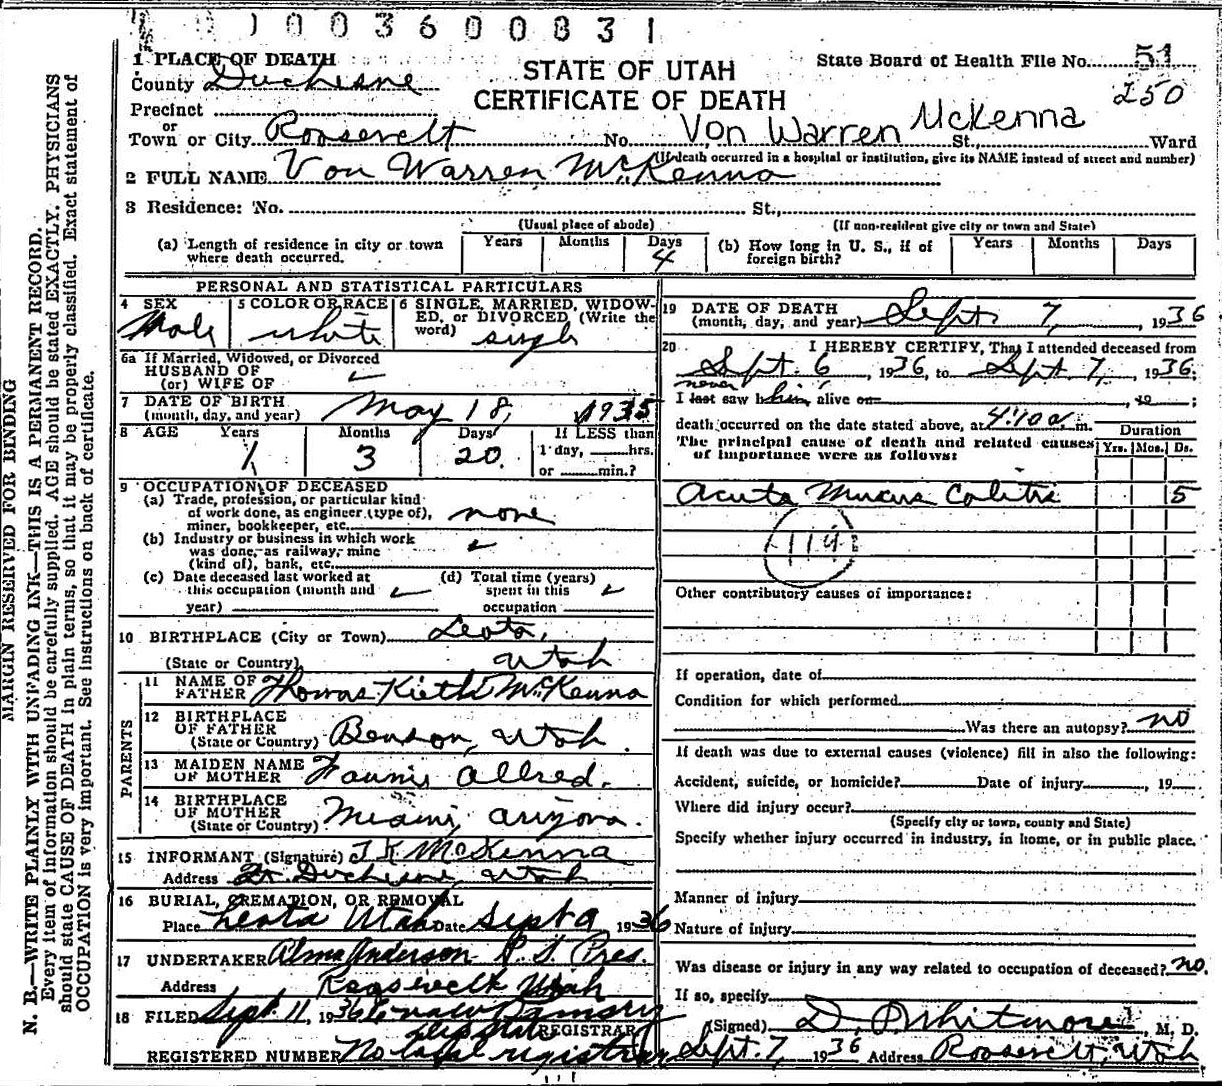 1003600831
1 PLACE OF DEATH
County Duchesne
Precinct
Town or City Roosevelt No. Von Warren McKenna St., Ward
STATE OF UTAH
CERTIFICATE OF DEATH
State Board of Health File No. 51
250
(If death occurred in a hospital or institution, give its NAME instead of street and number)
2 FULL NAME Von Warren McKenna
3 Residence: No. St.,
(Usual place of abode) (If non-resident give city or town and State)
(a) Length of residence in city or town where death occurred. Years Months Days 4
(b) How long in U. S., if of foreign birth? Years Months Days
PERSONAL AND STATISTICAL PARTICULARS
4 SEX Male
5 COLOR OR RACE white
6 SINGLE, MARRIED, WIDOWED, or DIVORCED (Write the word) single
6a If Married, Widowed, or Divorced
HUSBAND OF
(or) WIFE OF
7 DATE OF BIRTH
(month, day, and year) May 18, 1935
8 AGE Years 1 Months 3 Days 20 If LESS than
1 day, hrs.
or min.?
9 OCCUPATION OF DECEASED
(a) Trade, profession, or particular kind
of work done, as engineer (type of),
miner, bookkeeper, etc. none
(b) Industry or business in which work
was done, as railway, mine
(kind of), bank, etc.
(c) Date deceased last worked at
this occupation (month and
year)
(d) Total time (years)
spent in this
occupation
10 BIRTHPLACE (City or Town) Leota,
(State or Country) Utah
PARENTS
11 NAME OF
FATHER Thomas Kieth McKenna
12 BIRTHPLACE
OF FATHER
(State or Country) Benson, Utah
13 MAIDEN NAME
OF MOTHER Fannie Allred.
14 BIRTHPLACE
OF MOTHER
(State or Country) Miami, Arizona.
15 INFORMANT (Signature) T K McKenna
Address Ft. Duchesne, Utah
16 BURIAL, CREMATION, OR REMOVAL
Place Leota Utah Date Sept 9 1936
17 UNDERTAKER Alma Anderson R. S. Pres.
Address Roosevelt Utah
18 FILED Sept. 11, 1936
REGISTRAR
REGISTERED NUMBER No local registrar
19 DATE OF DEATH
(month, day, and year) Sept. 7, 1936
20 I HEREBY CERTIFY, That I attended deceased from
Sept. 6, 1936, to Sept 7, 1936;
never
I last saw him alive on , 19 ;
death occurred on the date stated above, at 4:10 a. m.
The principal cause of death and related causes
of importance were as follows:
Duration
Yrs. Mos. Ds.
Acute Mucus Colitis 5
114
Other contributory causes of importance:
If operation, date of
Condition for which performed
Was there an autopsy? no
If death was due to external causes (violence) fill in also the following:
Accident, suicide, or homicide? Date of injury , 19
Where did injury occur?
(Specify city or town, county and State)
Specify whether injury occurred in industry, in home, or in public place.
Manner of injury
Nature of injury
Was disease or injury in any way related to occupation of deceased? no.
If so, specify
(Signed) D. Whitmore, M. D.
Sept. 7, 1936 Address Roosevelt, Utah
MARGIN RESERVED FOR BINDING
N. B.—WRITE PLAINLY WITH UNFADING INK—THIS IS A PERMANENT RECORD.
Every item of information should be carefully supplied. AGE should be stated EXACTLY. PHYSICIANS
should state CAUSE OF DEATH in plain terms, so that it may be properly classified. Exact statement of
OCCUPATION is very important. See instructions on back of certificate.